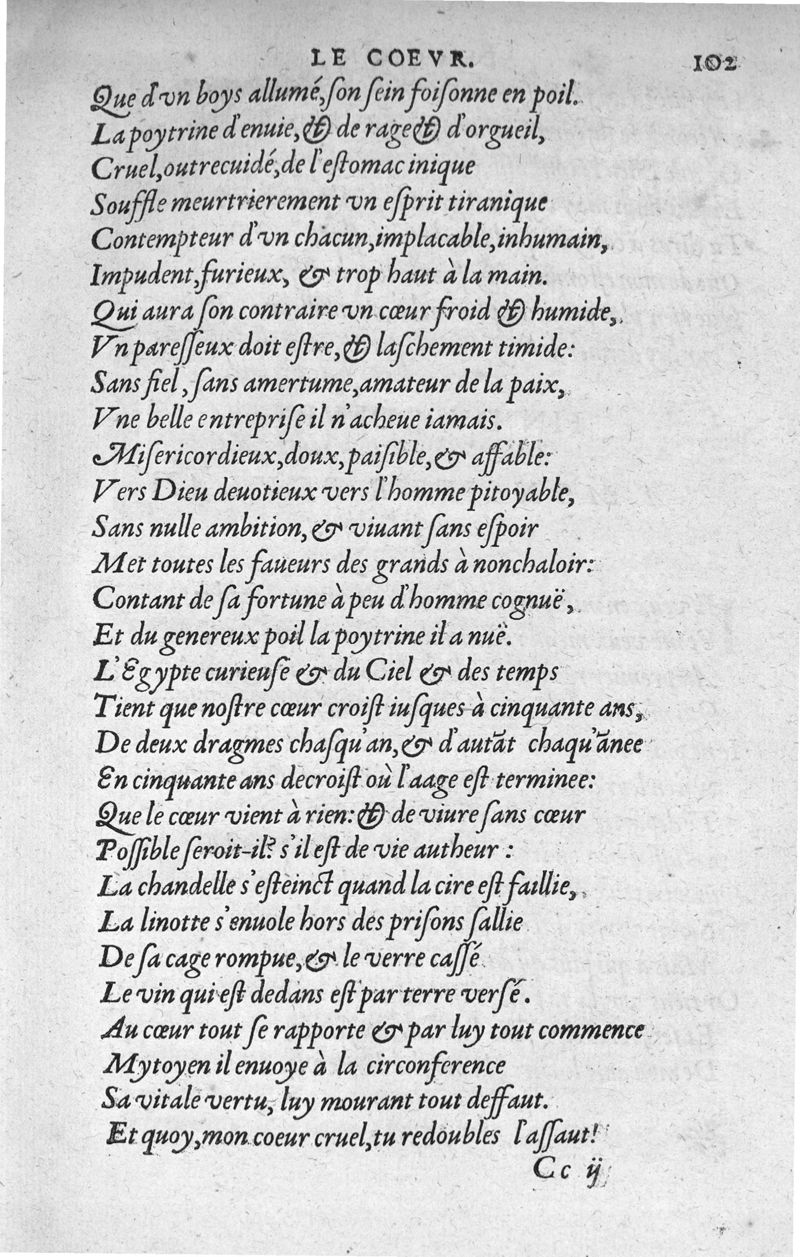 LE COEVR. 102
Que d'vn boys allumé, ſon ſein foiſonne en poil.
La poytrine d'enuie, & de rage & d'orgueil,
Cruel, outrecuidé, de l'eſtomac inique
Souffle meurtrierement vn eſprit tiranique
Contempteur d'vn chacun, implacable, inhumain,
Impudent, furieux, & trop haut à la main.
Qui aura ſon contraire vn cœur froid & humide,
Vn pareſſeux doit eſtre, & laſchement timide:
Sans fiel, ſans amertume, amateur de la paix,
Vne belle entrepriſe il n'acheue iamais.
Miſericordieux, doux, paiſible, & affable:
Vers Dieu deuotieux vers l'homme pitoyable,
Sans nulle ambition, & viuant ſans eſpoir
Met toutes les faueurs des grands à nonchaloir:
Contant de ſa fortune à peu d'homme cognuë,
Et du genereux poil la poytrine il a nuë.
L'Egypte curieuſe & du Ciel & des temps
Tient que noſtre cœur croiſt iuſques à cinquante ans,
De deux dragmes chaſqu'an, & d'autãt chaqu'ãnee
En cinquante ans decroiſt où l'aage eſt terminee:
Que le cœur vient à rien: & de viure ſans cœur
Poſſible ſeroit-il? s'il eſt de vie autheur :
La chandelle s'eſteinct quand la cire eſt faillie,
La linotte s'enuole hors des priſons ſallie
De ſa cage rompue, & le verre caſſé
Le vin qui eſt dedans eſt par terre verſé.
Au cœur tout ſe rapporte & par luy tout commence
Mytoyen il enuoye à la circonference
Sa vitale vertu, luy mourant tout deffaut.
Et quoy, mon coeur cruel, tu redoubles l'aſſaut!
Cc ij